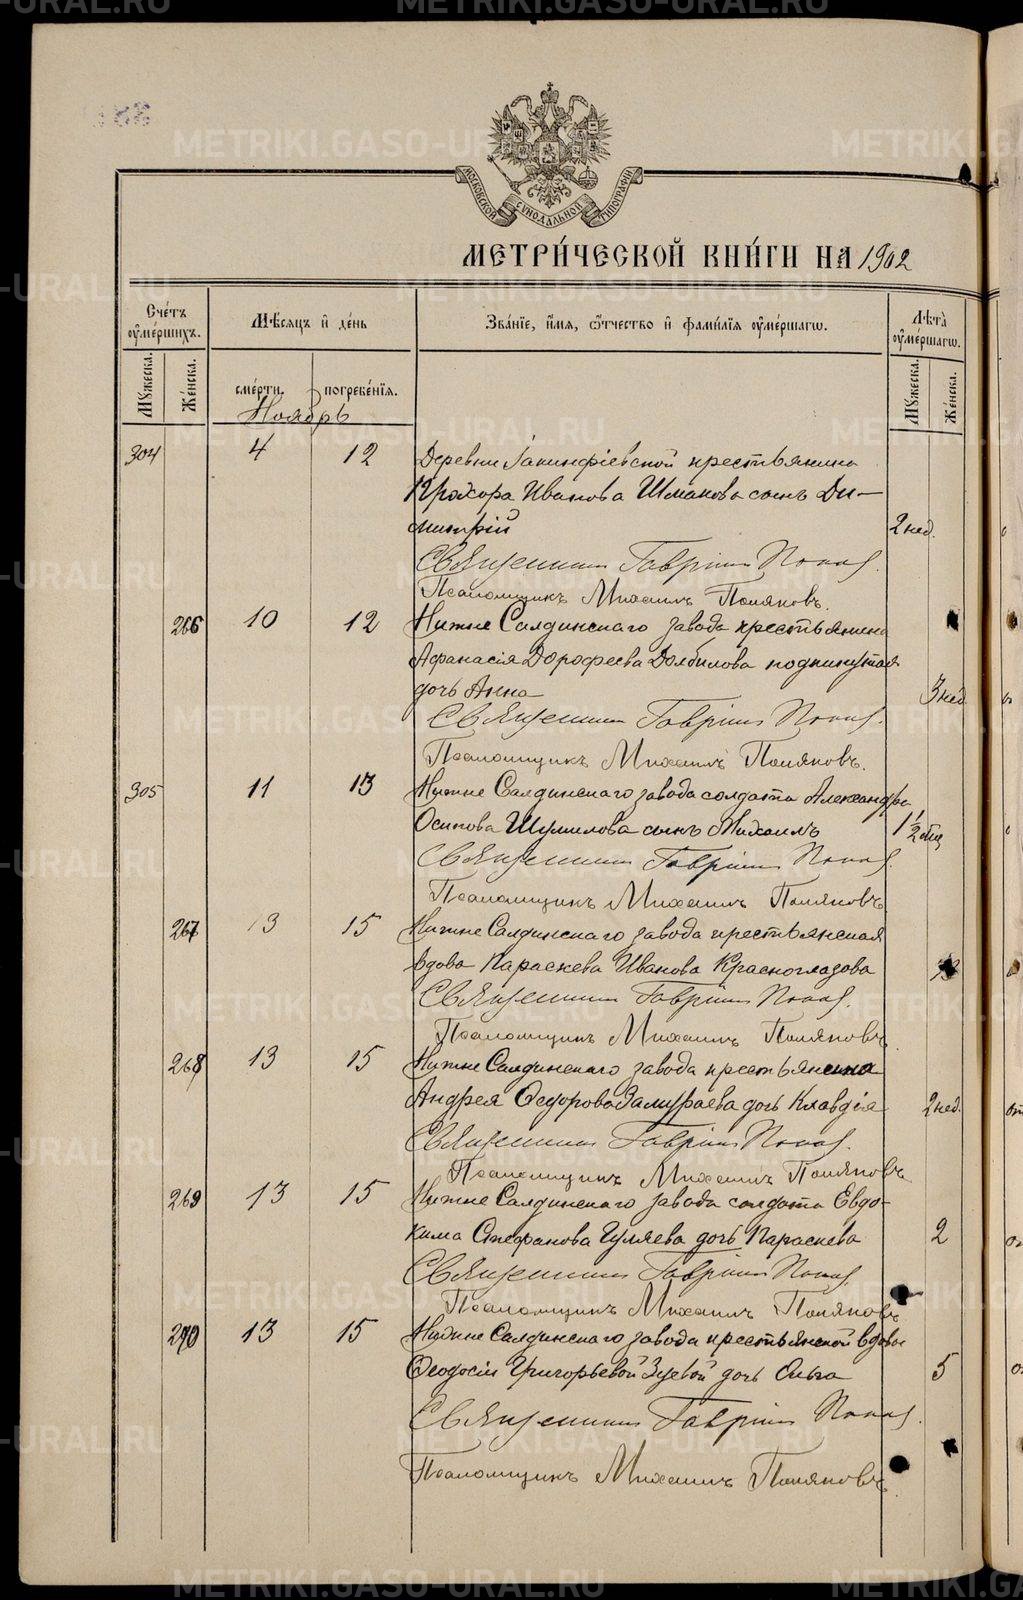 METRIKI.GASO-URAL.RU
МОСКОВСКОЙ СѴНОДАЛЬНОЙ ТИПОГРАФІИ
МЕТРИ́ЧЕСКОЙ КНИ́ГИ НА 1902
Счéтъ ѹ҆мéршихъ.
Мѣсяцъ и҆ дéнь
Звáніе, и҆́мя, ѻ҆́тчество и҆ фамúлія ѹ҆мéршагѡ.
Лѣтà ѹ҆мéршагѡ.
Мꙋжеска.
Жéнска.
смéрти.
погребéнія.
Мꙋжеска.
Жéнска.
Ноябрь
304 4 12 Деревни Іакинфіевской крестьянина
Прохора Иванова Шмакова сынъ Ди-
митрій 2 нед.
Священникъ Гавріилъ Поповъ.
Псаломщикъ Михаилъ Поляковъ.
266 10 12 Нижне Салдинскаго завода крестьянина
Афанасія Дорофеева Долбилова подкинутая
дочь Анна 3 нед
Священникъ Гавріилъ Поповъ.
Псаломщикъ Михаилъ Поляковъ.
305 11 13 Нижне Салдинскаго завода солдата Александра
Осипова Шумилова сынъ Михаилъ 1 1/2 мѣс
Священникъ Гавріилъ Поповъ.
Псаломщикъ Михаилъ Поляковъ
267 13 15 Нижне Салдинскаго завода крестьянская
вдова Параскева Иванова Красноглазова
Священникъ Гавріилъ Поповъ.
Псаломщикъ Михаилъ Поляковъ.
268 13 15 Нижне Салдинскаго завода крестьянина
Андрея Ѳедорова Замураева дочь Клавдія 2 нед.
Священникъ Гавріилъ Поповъ.
Псаломщикъ Михаилъ Поляковъ
269 13 15 Нижне Салдинскаго завода солдата Евдо-
кима Стефанова Гуляева дочь Параскева 2
Священникъ Гавріилъ Поповъ.
Псаломщикъ Михаилъ Поляковъ
270 13 15 Нижне Салдинскаго завода крестьянской вдовы
Ѳеодосіи Григорьевой Зуевой дочь Ольга 5
Священникъ Гавріилъ Поповъ.
Псаломщикъ Михаилъ Поляковъ.